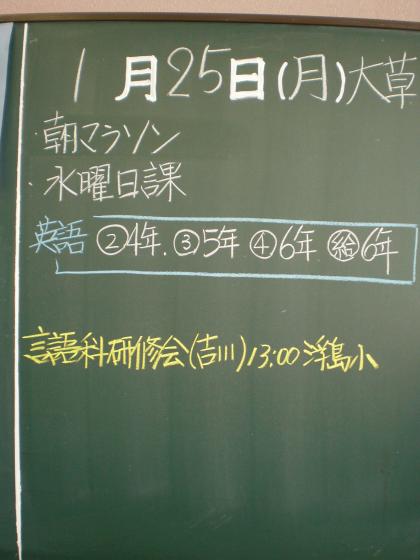 1月25日(月)大草
・朝マラソン
・水曜日課
英語 ②4年.③5年 ④6年 ㊡6年
言語科研修会(吉川)13:00 浮島小